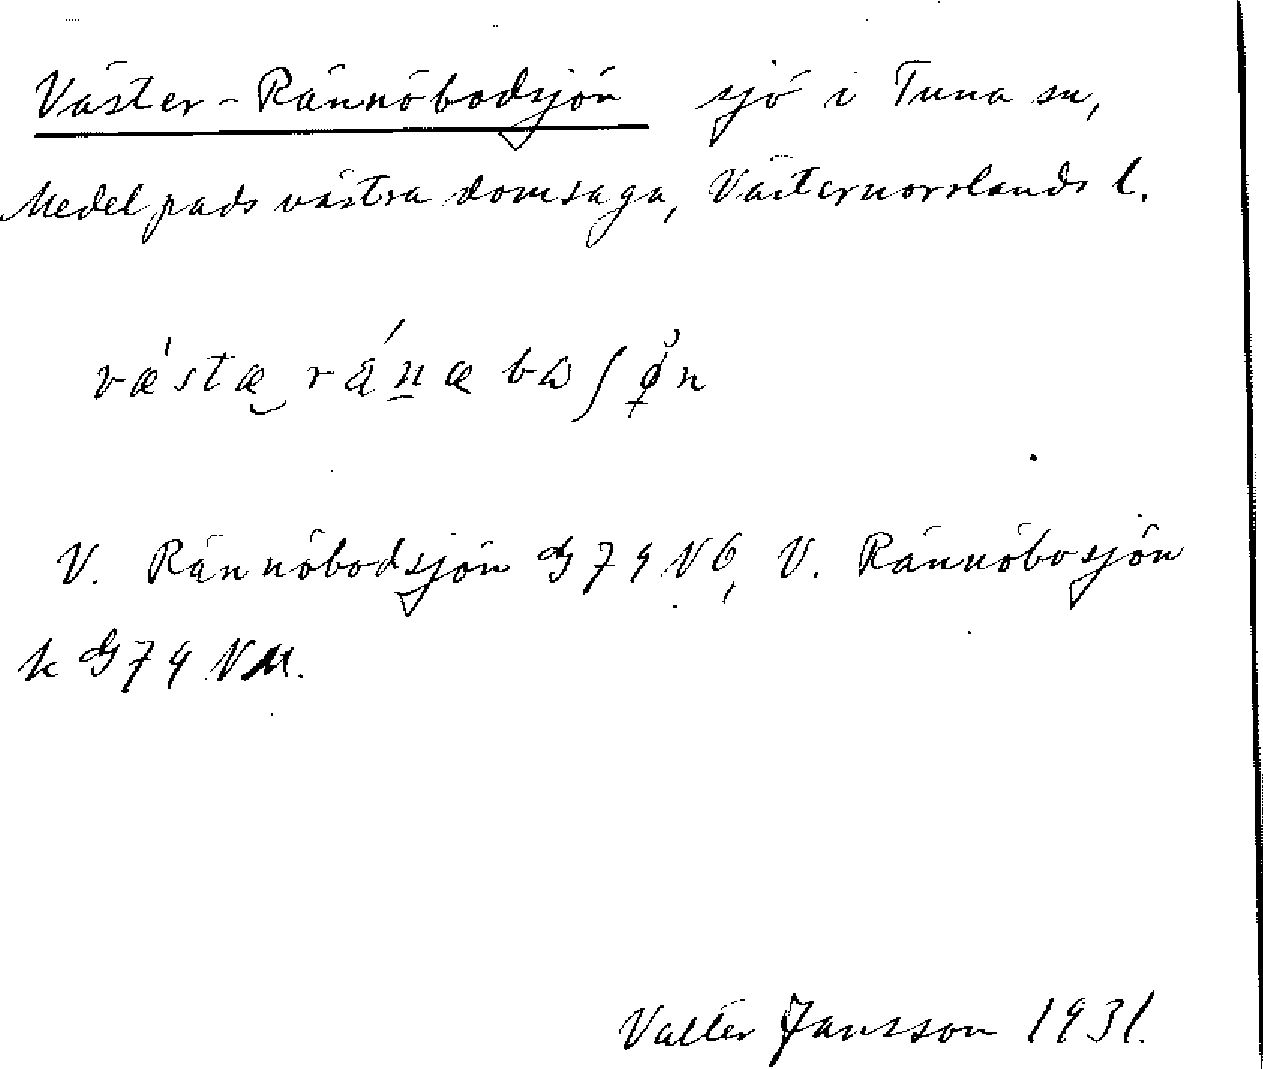 Väster-Rännöbodsjön sjö i Tuna sn,
Medelpads västra domsaga, Västernorrlands l.
V. Rännöbodsjön G 79 NÖ, V. Rännöbosjön
k G 79 NM.
Valter Jansson 1931.